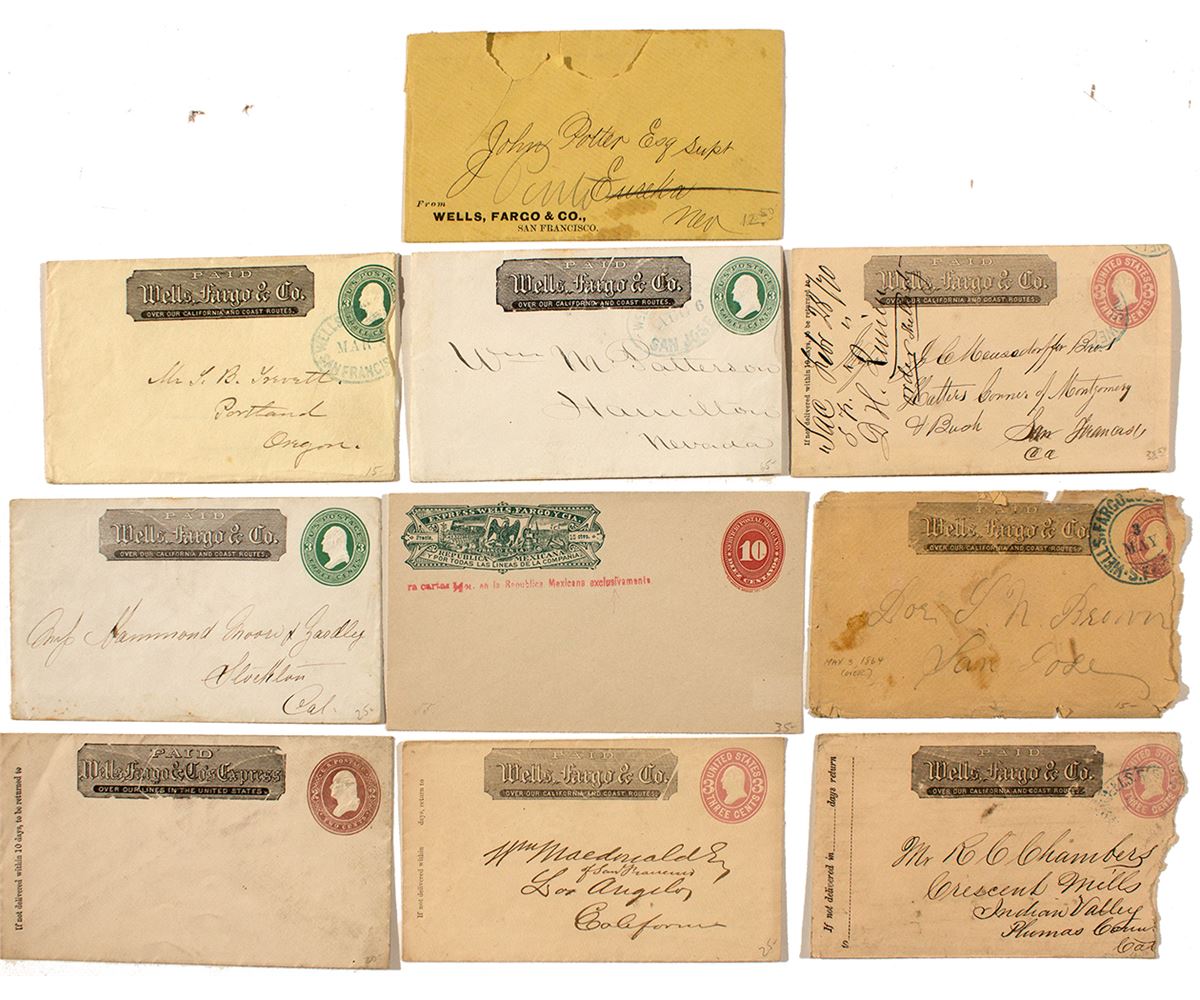 John Potter Esq Supt
Eureka
Nev
From
WELLS, FARGO & CO.,
SAN FRANCISCO.
12.50
PAID
Wells, Fargo & Co.
OVER OUR CALIFORNIA AND COAST ROUTES.
U.S. POSTAGE
THREE CENTS
WELLS
MAR
SAN FRANCISC
Portland
Oregon.
15-
PAID
Wells, Fargo & Co.
OVER OUR CALIFORNIA AND COAST ROUTES.
U.S. POSTAGE
THREE CENTS
AUG 6
SAN JOS
Wm M. Patterson
Hamilton
Nevada
PAID
Wells, Fargo & Co.
OVER OUR CALIFORNIA AND COAST ROUTES.
UNITED STATES
THREE CENTS
If not delivered within 10 days, to be returned to
Sac Febr 28/70
Hatters Corner of Montgomery
& Bush San Francisco
Ca
PAID
Wells, Fargo & Co.
OVER OUR CALIFORNIA AND COAST ROUTES.
U.S. POSTAGE
THREE CENTS
Hammond Moore & Yardley
Stockton
Cal.
25-
EXPRESS WELLS FARGO Y CIA.
REPUBLICA MEXICANA
Y POR TODAS LAS LINEAS DE LA COMPAÑIA
en la Republica Mexicana exclusivamente
SERVICIO POSTAL MEXICANO
10
DIEZ CENTAVOS
35-
PAID
Wells, Fargo & Co.
OVER OUR CALIFORNIA AND COAST ROUTES.
WELLS, FARGO
3
MAY
Brown
San Jose
MAY 3, 1864
(OVER)
15-
PAID
Wells Fargo & Co's Express
OVER OUR LINES IN THE UNITED STATES.
U.S. POSTAGE
TWO CENTS
If not delivered within 10 days, to be returned to
PAID
Wells, Fargo & Co.
OVER OUR CALIFORNIA AND COAST ROUTES.
UNITED STATES
3 3
THREE CENTS
If not delivered within days, return to
Wm Macdonald Esq
of San Francisco
Los Angelos
California
25-
PAID
Wells, Fargo & Co.
OVER OUR CALIFORNIA AND COAST ROUTES.
WELLS F
If not delivered in days return
to
Mr R C Chambers
Crescent Mills
Indian Valley
Plumas Coun
Cal